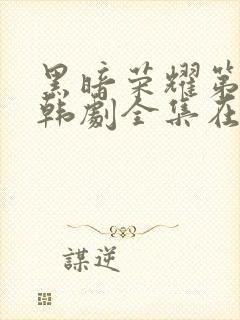 黑暗荣耀第
韩劇全集在
謀逆